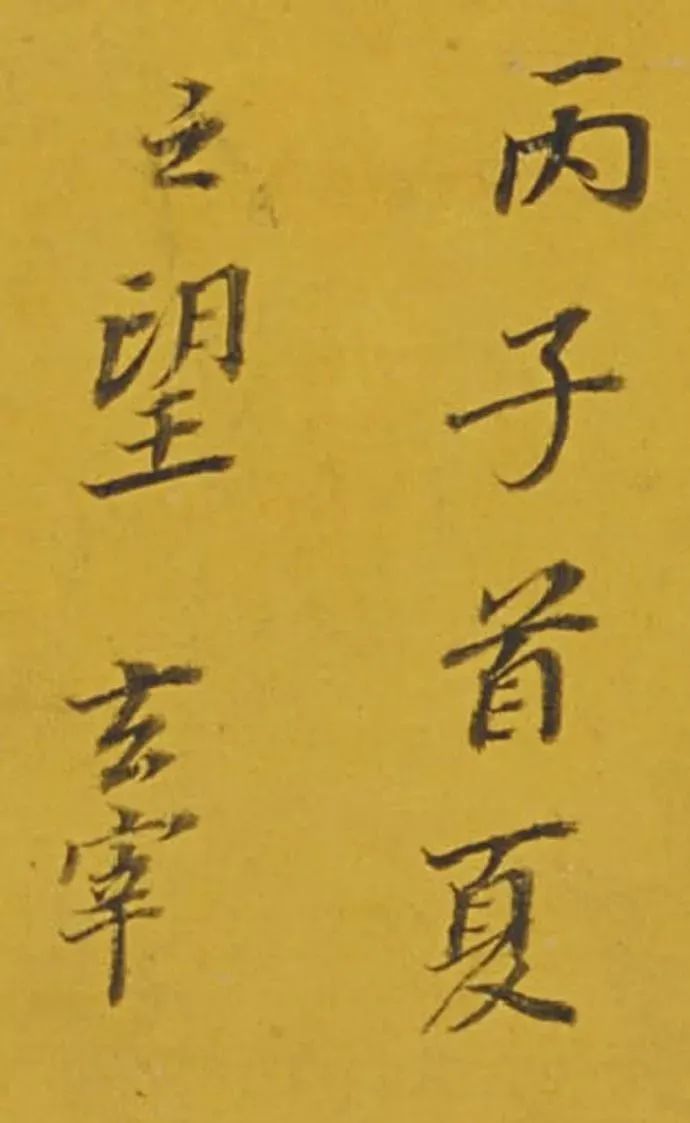 丙子首夏
之望 玄宰